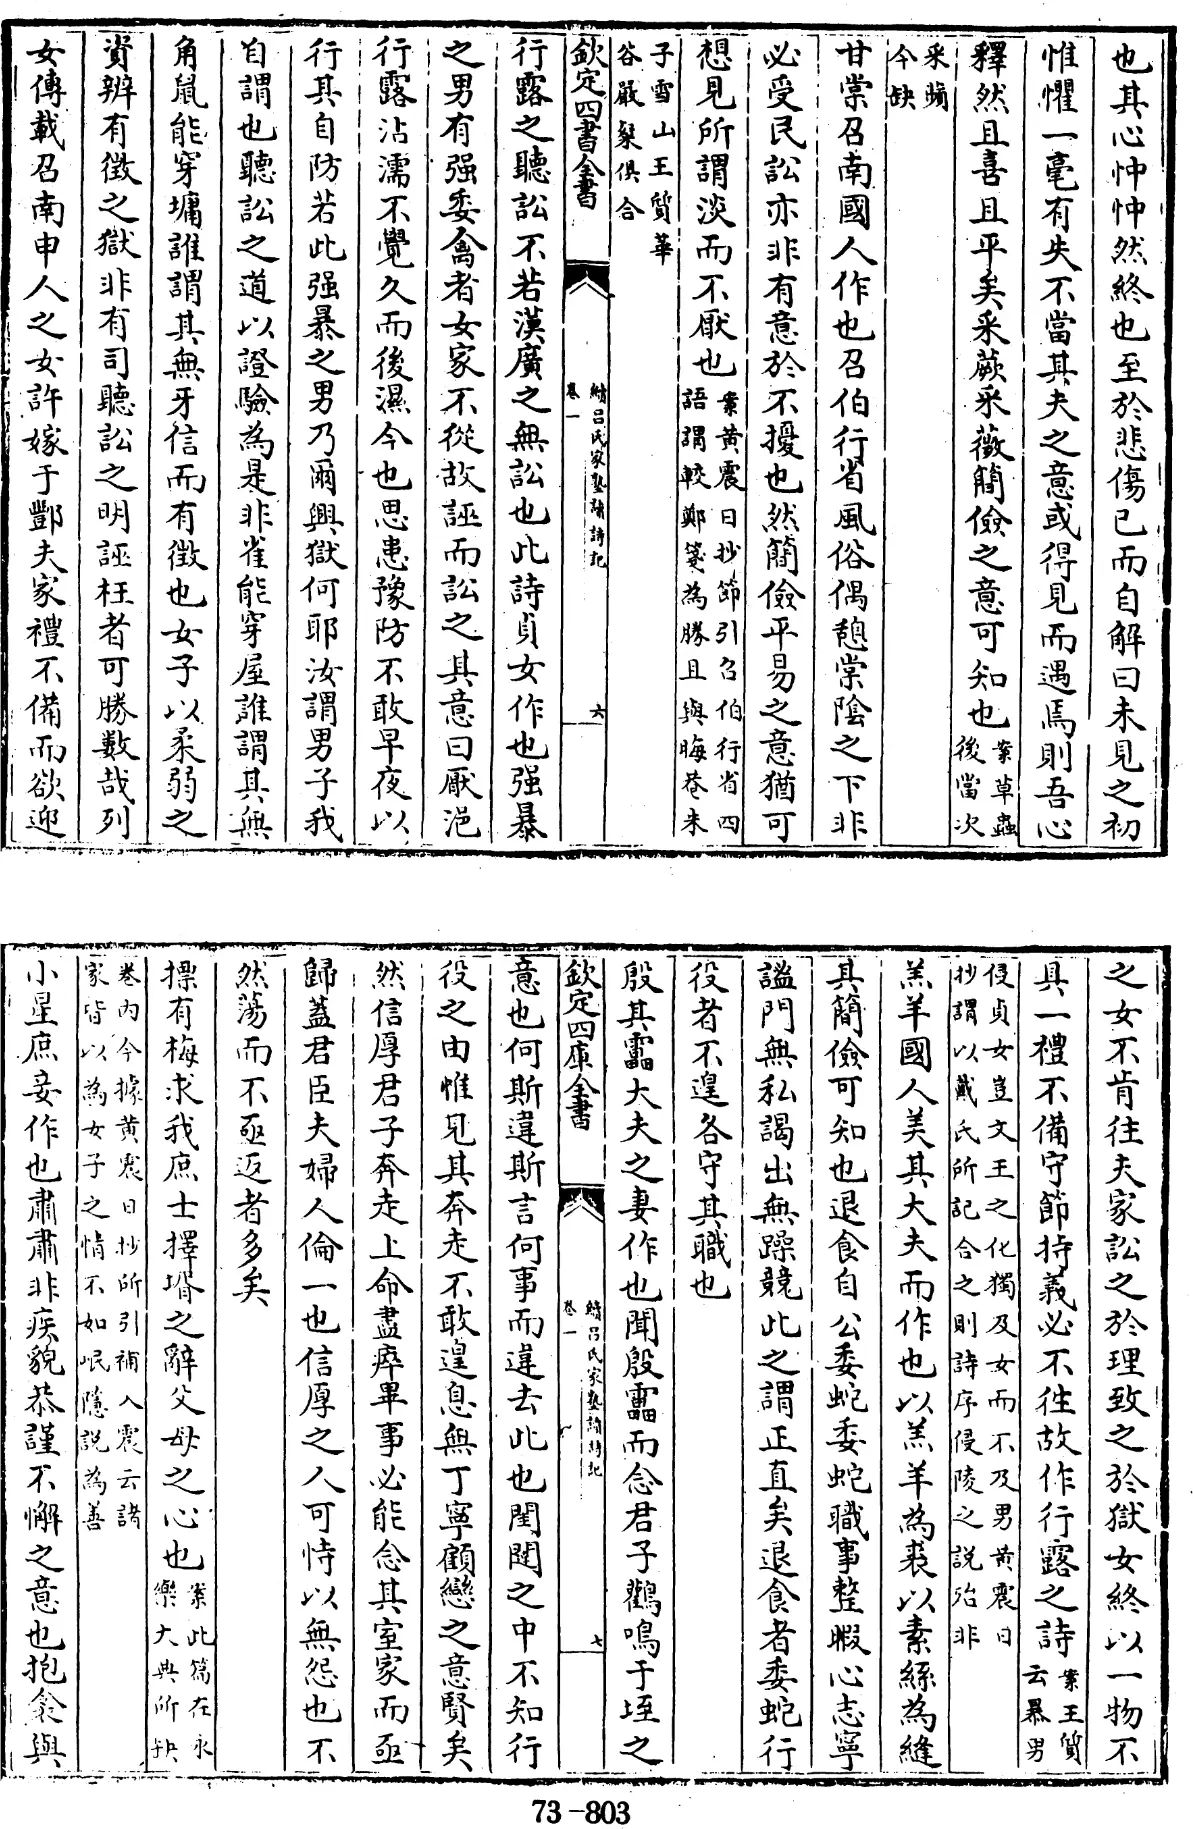 也其心忡忡然終也至於悲傷已而自解曰未見之初
惟懼一毫有失不當其夫之意或得見而遇焉則吾心
釋然且喜且平矣采蕨采薇簡儉之意可知也案草蟲
後當次
采蘋
今缺
甘棠召南國人作也召伯行省風俗偶憩棠陰之下非
必受民訟亦非有意於不擾也然簡儉平易之意猶可
想見所謂淡而不厭也案黃震日抄節引召伯行省四
語謂較鄭箋為勝且與晦菴朱
子雪山王質華
谷嚴粲俱合
欽定四書全書
續呂氏家塾讀詩記
卷一
六
行露之聽訟不若漢廣之無訟也此詩貞女作也强暴
之男有强委禽者女家不從故誣而訟之其意曰厭浥
行露沾濡不覺久而後濕今也思患豫防不敢早夜以
行其自防若此强暴之男乃爾興獄何耶汝謂男子我
自謂也聽訟之道以證驗為是非雀能穿屋誰謂其無
角鼠能穿墉誰謂其無牙信而有徵也女子以柔弱之
資辨有徵之獄非有司聽訟之明誣枉者可勝數哉列
女傳載召南申人之女許嫁于酆夫家禮不備而欲迎
之女不肯往夫家訟之於理致之於獄女終以一物不
具一禮不備守節持義必不往故作行露之詩案王質
云暴男
侵貞女豈文王之化獨及女而不及男黃震日
抄謂以戴氏所記合之則詩序侵陵之説殆非
羔羊國人美其大夫而作也以羔羊為裘以素絲為縫
其簡儉可知也退食自公委蛇委蛇職事整暇心志寧
謐門無私謁出無躁競此之謂正直矣退食者委蛇行
役者不遑各守其職也
殷其靁大夫之妻作也聞殷靁而念君子鸛鳴于垤之
欽定四庫全書
續呂氏家塾讀詩記
卷一
七
意也何斯違斯言何事而違去此也閨闥之中不知行
役之由惟見其奔走不敢遑息無丁寧顧戀之意賢矣
然信厚君子奔走上命盡瘁畢事必能念其室家而亟
歸蓋君臣夫婦人倫一也信厚之人可恃以無怨也不
然蕩而不亟返者多矣
摽有梅求我庶士擇壻之辭父母之心也案此篇在永
樂大典所缺
卷內今據黃震日抄所引補入震云諸
家皆以為女子之情不如岷隱説為善
小星庶妾作也肅肅非疾貌恭謹不懈之意也抱衾與
73-803